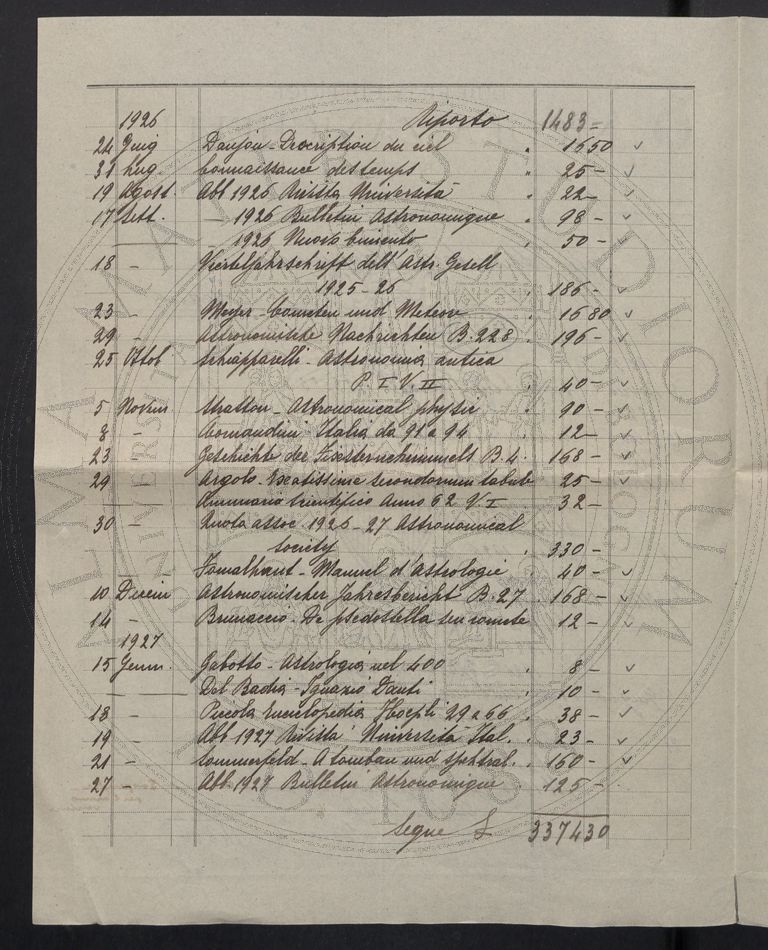 1926 Riporto 1483=
24 Giug Danjou - Description du ciel " 1650
31 Lug. Connaissance des temps " 25 -
19 Agost. Abb 1926 Rivista Università " 22 -
17 Sett. - 1926 Bulletin Astronomique " 98 -
- 1926 Nuovo Cimento " 50 -
18 - Vierteljahrschrift dell'Astr. Gesell
1925-26 " 186 -
23 - Meyer - Cometen und Meteore " 1680
29 - Astronomische Nachrichten B. 228 " 196 -
25 Ottob Schiapparelli - Astronomia antica
P. I V. II " 40 -
5 Novem Stratton - Astronomical physic " 90 -
8 - Comandini Italia da 91 a 94 " 12 -
23 - Geschichte der Fixsternhimmels B. 4. " 168 -
29 - Argolo - secondorum tabule " 25 -
Annuario Scientifico Anno 62 V. I 32 -
30 - Quota assoc. 1926-27 Astronomical
Society " 330 -
- - Fomalhaut - Manuel d'Astrologie " 40 -
10 Dicem Astronomischer Jahresbericht B. 27 " 168 -
14 - Brunaccio - De psedostella seu comete 12 -
1927
15 Genn. Gabotto - Astrologia nel 400 " 8 -
Del Badia - Ignazio Danti " 10 -
18 - Piccola Enciclopedia Hoepli 29 a 66 " 38 -
19 Abb 1927 Rivista Università Ital. " 23 -
21 - Sommerfeld - Atombau und Spektral. " 160 -
27 - Abb 1927 Bulletin Astronomique 125 -
Segue L 337430
ALMA MATER STUDIORUM